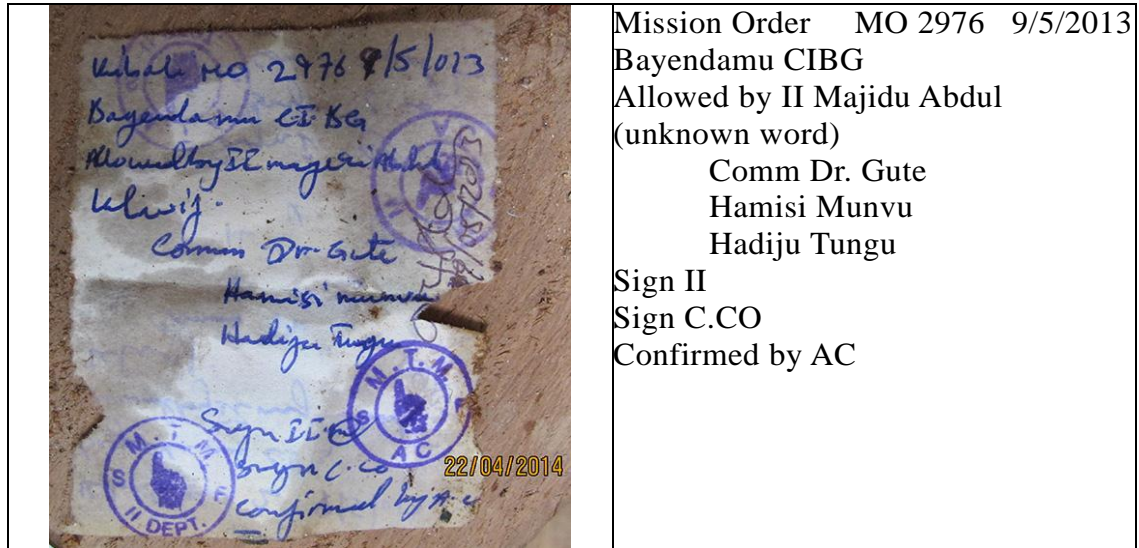 Kibali MO 2976 9/5/013
Bayendamu CIBG
Allowed by II
Comm Dr. Gute
Hamisi munvu
Hadija Tungu
M.T.M
S F
AC
Sign II
Sign C.CO
Confirmed by A.C
M.T.M
S F
II DEPT.
22/04/2014
Mission Order MO 2976 9/5/2013
Bayendamu CIBG
Allowed by II Majidu Abdul
(unknown word)
Comm Dr. Gute
Hamisi Munvu
Hadiju Tungu
Sign II
Sign C.CO
Confirmed by AC